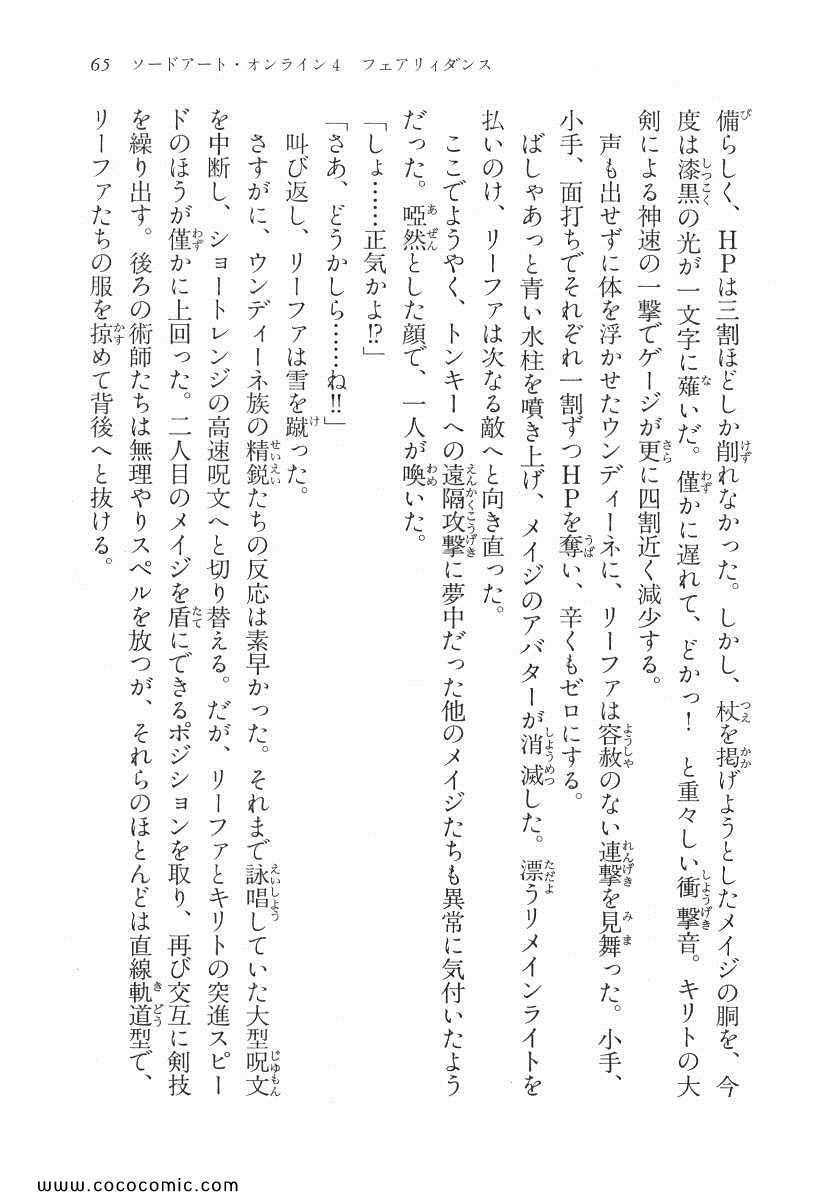 65　ソードアート・オンライン4　フェアリィダンス
備らしく、HPは三割ほどしか削れなかった。しかし、杖を掲げようとしたメイジの胴を、今
度は漆黒の光が一文字に薙いだ。僅かに遅れて、どかっ！　と重々しい衝撃音。キリトの大
剣による神速の一撃でゲージが更に四割近く減少する。
　声も出せずに体を浮かせたウンディーネに、リーファは容赦のない連撃を見舞った。小手、
小手、面打ちでそれぞれ一割ずつHPを奪い、辛くもゼロにする。
　ばしゃあっと青い水柱を噴き上げ、メイジのアバターが消滅した。漂うリメインライトを
払いのけ、リーファは次なる敵へと向き直った。
　ここでようやく、トンキーへの遠隔攻撃に夢中だった他のメイジたちも異常に気付いたよう
だった。啞然とした顔で、一人が喚いた。
「しょ……正気かよ!?」
「さあ、どうかしら……ね!!」
　叫び返し、リーファは雪を蹴った。
　さすがに、ウンディーネ族の精鋭たちの反応は素早かった。それまで詠唱していた大型呪文
を中断し、ショートレンジの高速呪文へと切り替える。だが、リーファとキリトの突進スピー
ドのほうが僅かに上回った。二人目のメイジを盾にできるポジションを取り、再び交互に剣技
を繰り出す。後ろの術師たちは無理やりスペルを放つが、それらのほとんどは直線軌道型で、
リーファたちの服を掠めて背後へと抜ける。
www.cococomic.com/